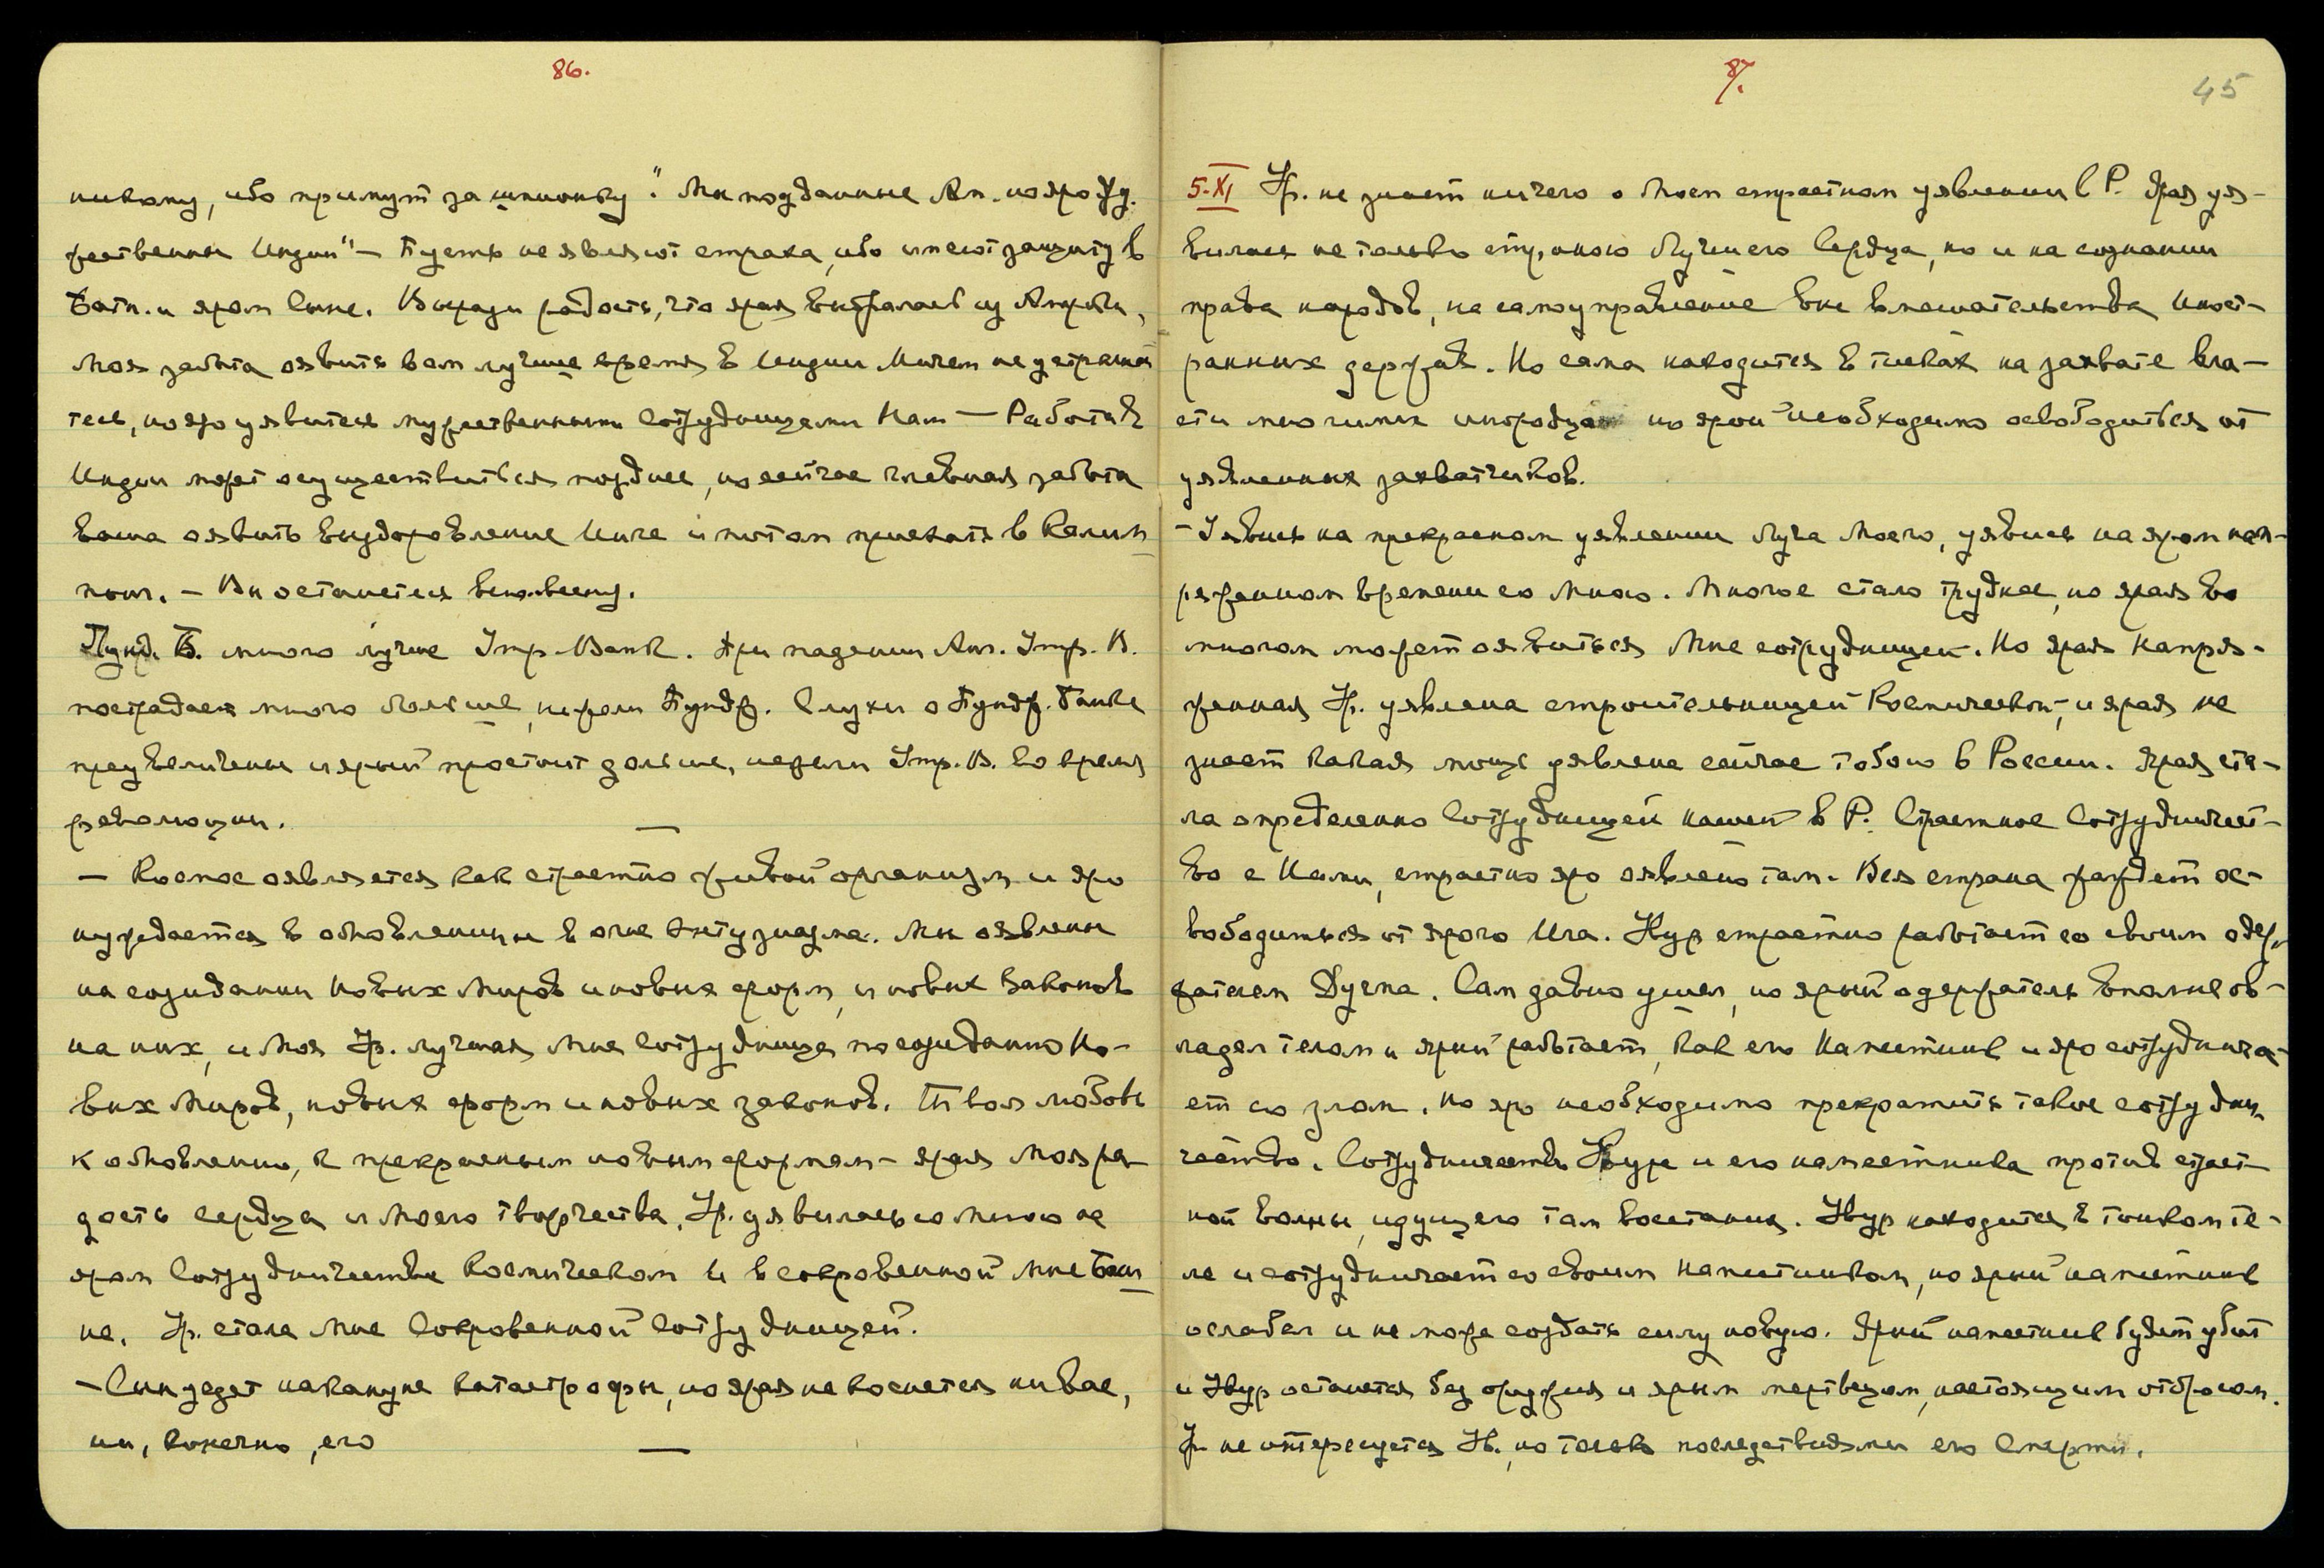 86.
никому, ибо примут за шпионку." Мы подданные Ам. но яро дру-
жественны Индии" — Пусть не являют страха, ибо имеют защиту в
Вати. и яром Сыне. Вырази радость, что ярая выбралась из Америки,
Моя забота оявить вам лучшее время в Индии Ничем не устрашай-
тесь, но яро уявитесь мужественными Сотрудницами Нам — Работа в
Индии может осуществиться позднее, но сейчас главная забота
ваша оявить выздоровление Инге и потом приехать в Калим-
понг. — Вы останетесь
Пундж. Б. много лучше Imp. Bank. При падении Анг. Imp. B.
пострадает много больше, нежели Пундж. Слухи о Пундж. Банке
преувеличены и ярый простоит дольше, нежели Imp. B. во время
революции.
— Космос оявляется как страстно живой организм и яро
нуждается в обновлении и в огне энтузиазма. Мы оявлены
на созидании Новых Миров и новых форм, и новых Законов
на них, и Моя Ур. лучшая Мне Сотрудница по созиданию Но-
вых Миров, новых форм и новых законов. Твоя любовь
к обновлению, к прекрасным новым формам — ярая Моя ра-
дость сердца и Моего творчества. Ур. уявилась со Мною на
яром Сотрудничестве Космическом и в сокровенной Мне Баш-
не. Ур. стала Мне Сокровенной Сотрудницей.
— Сын уедет накануне катастрофы, но ярая не коснется ни вас,
ни, конечно, его
87.
45
5-XI Ур. не знает ничего о Моем страстном уявлении в Р. Ярая уя-
вилась не только струною Лучшего Сердца, но и на сознании
права народов, на самоуправление вне вмешательства Иност-
ранных держав. Но сама находится в тисках на захвате вла-
сти многими инородцами но ярой необходимо освободиться от
уявленных захватчиков.
— Уявись на прекрасном уявлении Луча Моего, уявись на яром нап-
ряженном времени со Мною. Многое стало труднее, но ярая во
многом может оявиться Мне сотрудницей. Но ярая напря-
женная Ур. уявлена строительницей Космической, и ярая не
знает какая мощь уявлена сейчас тобою в России. Ярая ста-
ла определенно Сотрудницей нашей в Р. Страстное Сотрудничест-
во с Нами, страстно яро оявлено там. Вся страна жаждет ос-
вободиться от ярого Ига. Жур страстно работает со своим одер-
жателем Дугпа. Сам давно ушел, но ярый одержатель вполне ов-
ладел телом и ярый работает, как его Наместник и яро сотруднича-
ет со злом. Но яро необходимо прекратить такое сотрудни-
чество. Сотрудничество и его наместника против страст-
ной волны, идущего там восстания. находится в тонком те-
ле и сотрудничает со своим Наместником, но ярый наместник
ослабел и не може создать силу новую. Ярый наместник будет убит
и останется без орудия и ярым мертвецом, настоящим отбросом.
Ур. не интересуется но только последствиями его Смерти.